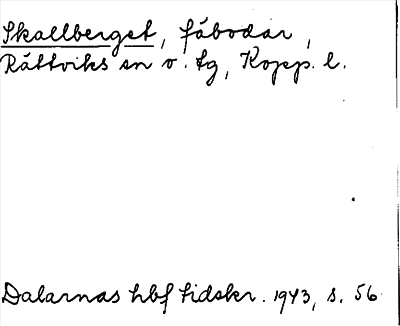 Skallberget, fäbodar,
Rättviks sn o. tg, Kopp. l.
Dalarnas hbf tidskr. 1943, s. 56